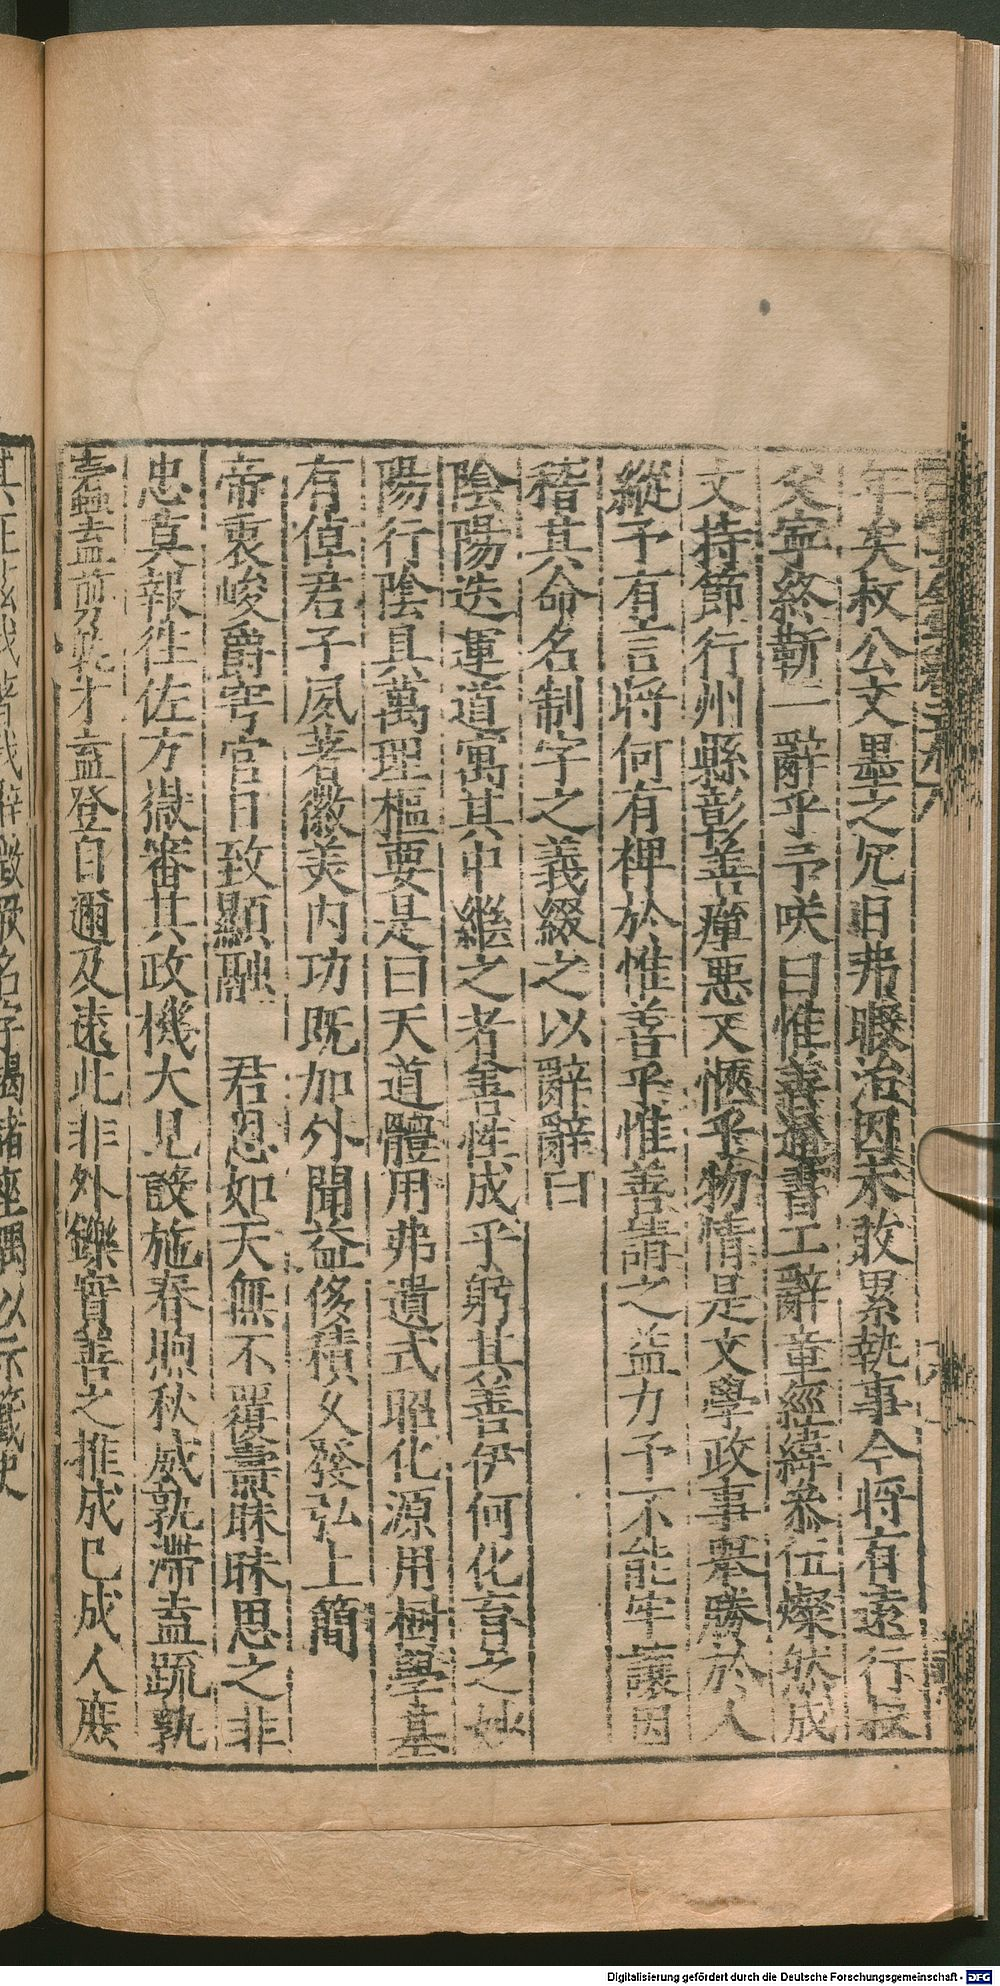 年矣叔公文墨之冗日弗暇治因未敢累執事今將有遠行叔
父寧終靳一辭乎予咲曰惟善過書工辭章經緯叅伍燦然成
文持節行州縣彰善癉悪又愜乎物情是文學政事舉勝於人
縱予有言將何有裨於惟善乎惟善請之益力予不能牢讓因
稽其命名制字之義綴之以辭辭曰
陰陽迭運道寓其中繼之者善性成乎躬其善伊何化育之妙
陽行陰具萬理樞要是曰天道體用弗遺式昭化源用樹學基
有倬君子夙著徽美内功既加外聞益侈積久發弘上簡
帝衷峻爵穹官日致顯融 君恩如天無不覆燾昧昧思之非
忠莫報徃佐方嶽審其政機大見設施春煦秋威孰滯盍䟽孰
蠧盍去盍前乃執才盍登自邇及逺此非外鑠實善之推成已成人庶
其正兹我 我辭徵厥名字揭諸座隅以示箴史
Digitalisierung gefördert durch die Deutsche Forschungsgemeinschaft - DFG